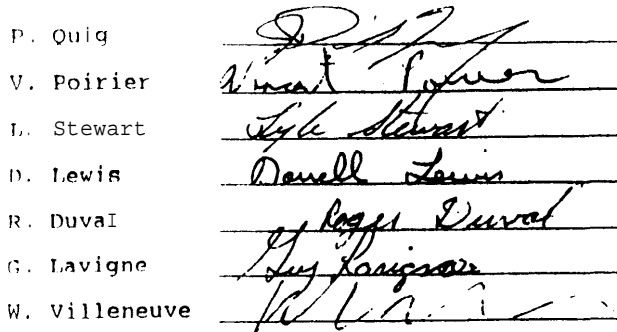 P. Quig
V. Poirier Vincent Poirier
L. Stewart Lyle Stewart
D. Lewis Darrell Lewis
R. Duval Roger Duval
G. Lavigne Guy Lavigne
W. Villeneuve